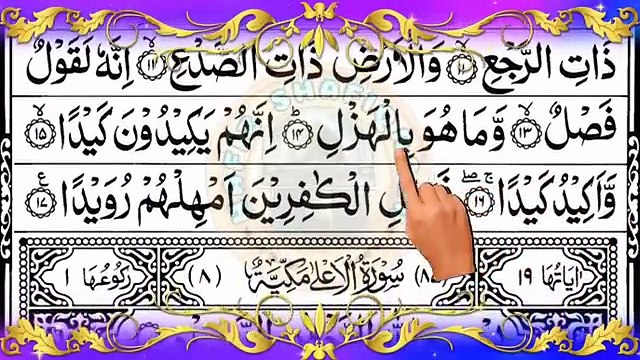 ذَاتِ الرَّجْعِ ۝۱۱ وَالْاَرْضِ ذَاتِ الصَّدْعِ ۝۱۲ اِنَّهٗ لَقَوْلٌ
فَصْلٌ ۝۱۳ وَّمَا هُوَ بِالْهَزْلِ ۝۱۴ اِنَّهُمْ يَكِيْدُوْنَ كَيْدًا ۝۱۵
وَّاَكِيْدُ كَيْدًا ۝۱۶ الْكٰفِرِيْنَ اَمْهِلْهُمْ رُوَيْدًا ۝۱۷
اٰيَاتُهَا ۱۹ سُوْرَةُ الْاَعْلٰى مَكِّيَّةٌ (۸) رُكُوْعُهَا ۱